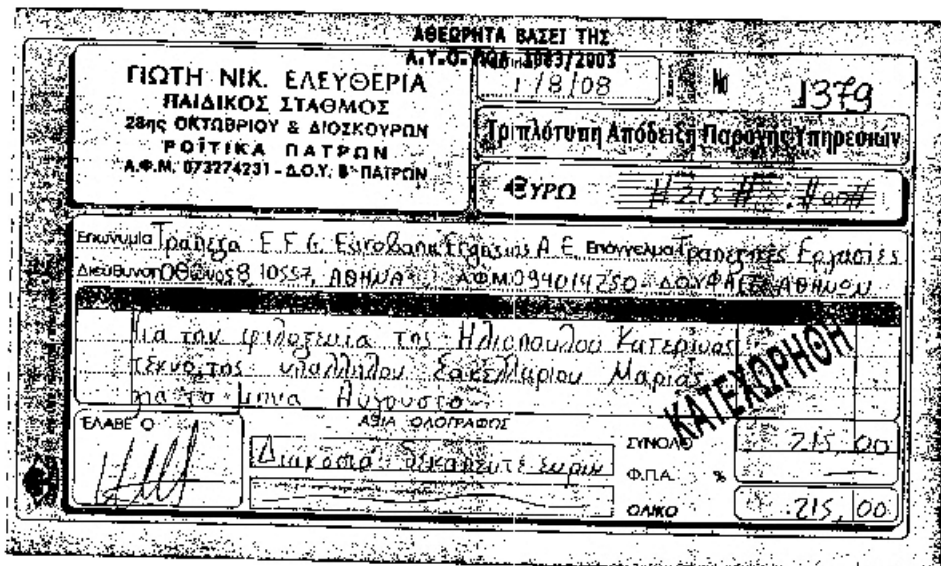 ΑΘΕΩΡΗΤΑ ΒΑΣΕΙ ΤΗΣ
Α.Υ.Ο. ΠΟΛ. 1083/2003
ΓΙΩΤΗ ΝΙΚ. ΕΛΕΥΘΕΡΙΑ
ΠΑΙΔΙΚΟΣ ΣΤΑΘΜΟΣ
28ης ΟΚΤΩΒΡΙΟΥ & ΔΙΟΣΚΟΥΡΩΝ
ΡΟΪΤΙΚΑ ΠΑΤΡΩΝ
Α.Φ.Μ. 073274231 - Δ.Ο.Υ. Β' ΠΑΤΡΩΝ
1/8/08
№ 1379
Τριπλότυπη Απόδειξη Παροχής Υπηρεσιών
ΕΥΡΩ #215#.#00#
Επωνυμία Τράπεζα E.F.G. Eurobank Ergasias A.E. Επάγγελμα Τραπεζικές Εργασίες
Διεύθυνση Όθωνος 8 10557, ΑΘΗΝΑ Α.Φ.Μ. 094014250 ΔΟΥ ΦΑΕΕ ΑΘΗΝΩΝ
Για την φιλοξενία της Ηλιοπούλου Κατερίνας
τέκνο της υπαλλήλου Σακελλαρίου Μαρίας
για το μήνα Αύγουστο
ΚΑΤΕΧΩΡΗΘΗ
ΕΛΑΒΕ Ο
ΑΞΙΑ ΟΛΟΓΡΑΦΩΣ
Διακόσια δεκαπέντε ευρώ
ΣΥΝΟΛΟ 215,00
Φ.Π.Α. %
ΟΛΙΚΟ 215,00